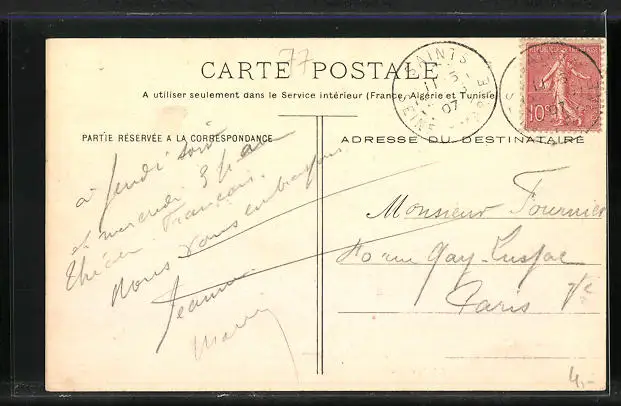 77
CARTE POSTALE
A utiliser seulement dans le Service intérieur (France, Algérie et Tunisie)
PARTIE RÉSERVÉE A LA CORRESPONDANCE
ADRESSE DU DESTINATAIRE
RÉPUBLIQUE FRANÇAISE
10
07
à jeudi soir
et mercredi
Théâtre Français.
Nous vous embrassons
Jeanne
Monsieur Fournier
rue Gay-Lussac
Paris
4,-